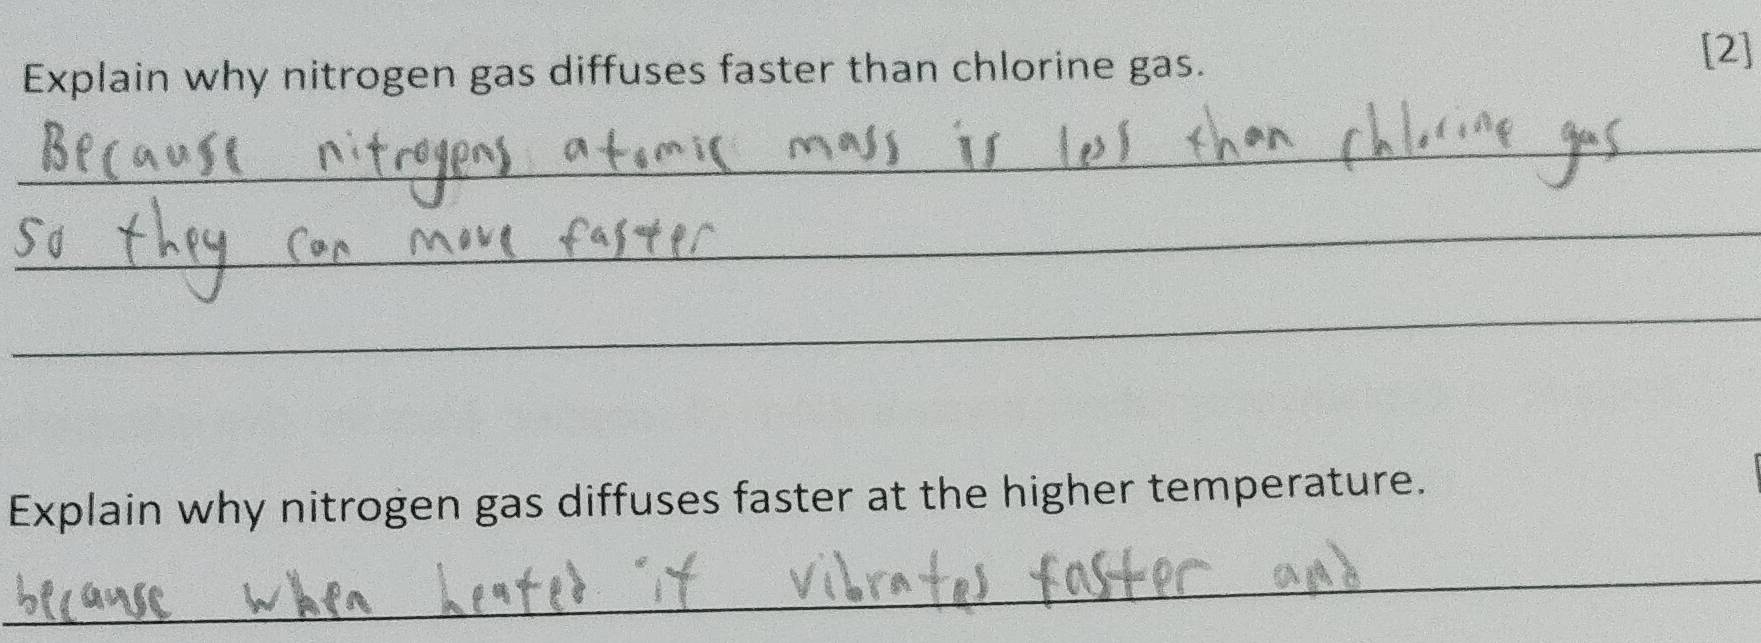 Explain why nitrogen gas diffuses faster than chlorine gas. [2]
Because nitrogens atomic mass is less than chlorine gas
so they can move faster
Explain why nitrogen gas diffuses faster at the higher temperature.
because when heated it vibrates faster and